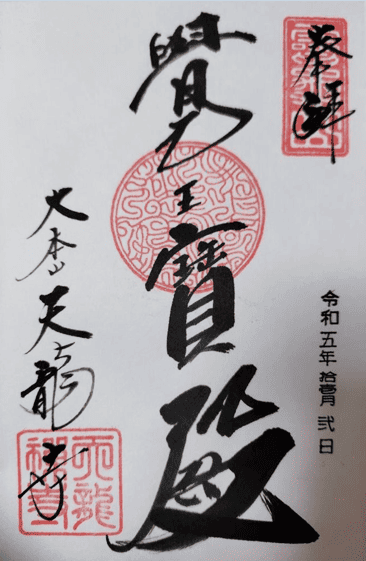 奉拝
令和五年 拾壹月 弐日
覺王寶殿
大本山天龍寺
天龍
禪寺